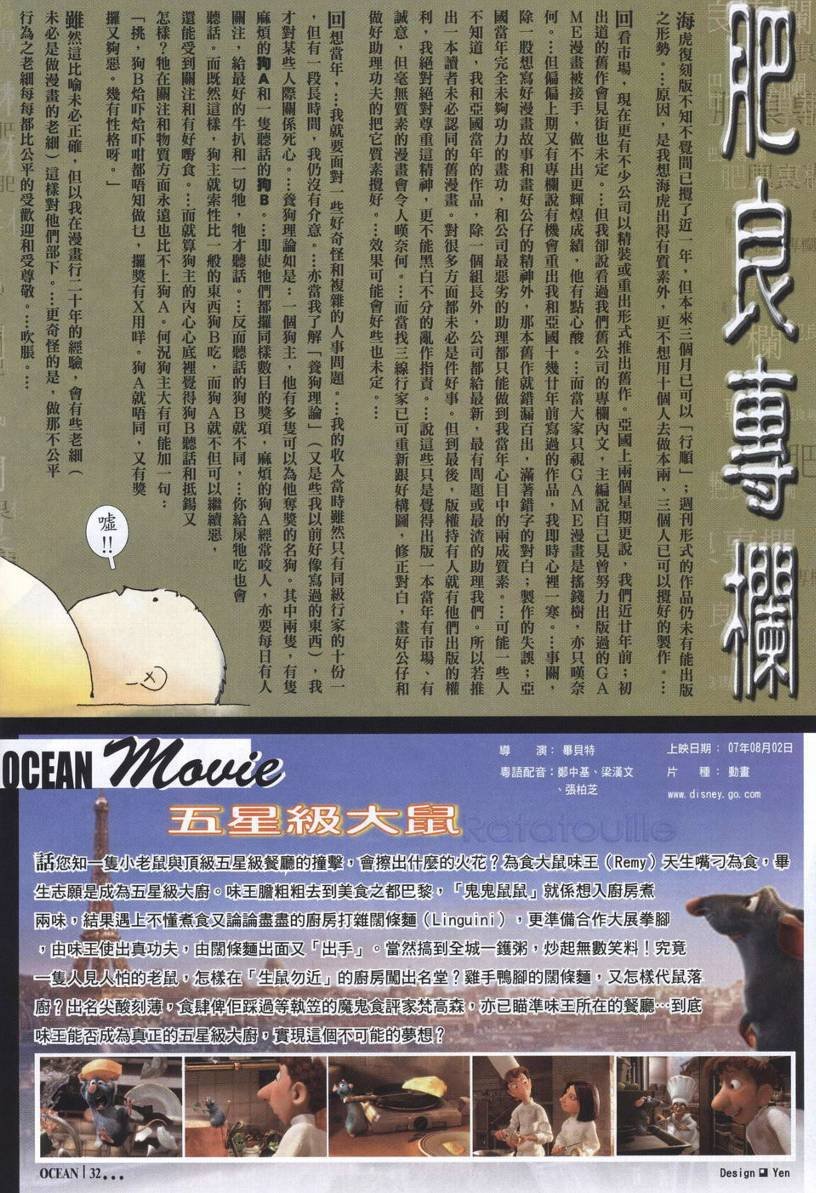 肥良專欄
海虎復刻版不知不覺間已攪了近一年，但本來三個月已可以「行順」；週刊形式的作品仍未有能出版
之形勢。…原因，是我想海虎出得有質素外，更不想用十個人去做本兩、三個人已可以攪好的製作。…
回看市場，現在更有不少公司以精裝或重出形式推出舊作。亞國上兩個星期更說，我們近廿年前；初
出道的舊作會見街也未定。…但我卻說看過我們舊公司的專欄內文，主編說自己見曾努力出版過的ＧＡ
ＭＥ漫畫被接手，做不出更輝煌成績，他有點心酸。…而當大家只視ＧＡＭＥ漫畫是搖錢樹，亦只嘆奈
何。…但偏偏上期又有專欄說有機會重出我和亞國十幾廿年前寫過的作品，我即時心裡一寒。…事關，
除一股想寫好漫畫故事和畫好公仔的精神外，那本舊作就錯漏百出，滿著錯字的對白；製作的失誤；亞
國當年完全未夠功力的畫功，和公司最惡劣的助理都只能做到我當年心目中的兩成質素。…可能一些人
不知道，我和亞國當年的作品，除一個組長外，公司都給最新，最有問題或最渣的助理我們。所以若推
出一本讀者未必認同的舊漫畫。對很多方面都未必是件好事。但到最後，版權持有人就有他們出版的權
利，我絕對絕對尊重這精神，更不能黑白不分的亂作指責。…說這些只是覺得出版一本當年有市場、有
誠意，但毫無質素的漫畫會令人嘆奈何。…而當找三線行家已可重新跟好構圖，修正對白，畫好公仔和
做好助理功夫的把它質素攪好。…效果可能會好些也未定。…
回想當年，…我就要面對一些好奇怪和複雜的人事問題。…我的收入當時雖然只有同級行家的十份一
，但有一段長時間，我仍沒有介意。…亦當我了解「養狗理論」（又是些我以前好像寫過的東西），我
才對某些人際關係死心。…養狗理論如是：一個狗主，他有多隻可以為他奪獎的名狗。其中兩隻，有隻
麻煩的狗Ａ和一隻聽話的狗Ｂ。…即使牠們都攞同樣數目的獎項，麻煩的狗Ａ經常咬人，亦要每日有人
關注，給最好的牛扒和一切牠，牠才聽話。…反而聽話的狗Ｂ就不同，…你給屎牠吃也會
聽話。而既然這樣，狗主就索性比一般的東西狗Ｂ吃，而狗Ａ就不但可以繼續惡，
還能受到關注和有好嘢食。…而就算狗主的內心心底裡覺得狗Ｂ聽話和抵錫又
怎樣？牠在關注和物質方面永遠也比不上狗Ａ。何況狗主大有可能加一句：
「挑，狗Ｂ烚吓烚吓咁都唔知做乜，攞獎有Ｘ用咩。狗Ａ就唔同，又有獎
攞又夠惡。幾有性格呀。」
雖然這比喻未必正確，但以我在漫畫行二十年的經驗，會有些老細（
未必是做漫畫的老細）這樣對他們部下。…更奇怪的是，做那不公平
行為之老細每每都比公平的受歡迎和受尊敬。…吹脹。…
噓!!
OCEAN Movie
導　演：畢貝特
粵語配音：鄭中基、梁漢文
、張柏芝
上映日期：07年08月02日
片　種：動畫
www.disney.go.com
五星級大鼠
Ratatouille
話您知一隻小老鼠與頂級五星級餐廳的撞擊，會擦出什麼的火花？為食大鼠味王（Remy）天生嘴刁為食，畢
生志願是成為五星級大廚。味王膽粗粗去到美食之都巴黎，「鬼鬼鼠鼠」就係想入廚房煮
兩味，結果遇上不懂煮食又論論盡盡的廚房打雜闊條麵（Linguini），更準備合作大展拳腳
，由味王使出真功夫，由闊條麵出面又「出手」。當然搞到全城一鑊粥，炒起無數笑料！究竟
一隻人見人怕的老鼠，怎樣在「生鼠勿近」的廚房闖出名堂？雞手鴨腳的闊條麵，又怎樣代鼠落
廚？出名尖酸刻薄，食肆俾佢踩過等執笠的魔鬼食評家梵高森，亦已瞄準味王所在的餐廳…到底
味王能否成為真正的五星級大廚，實現這個不可能的夢想？
OCEAN | 32...
Design Yen